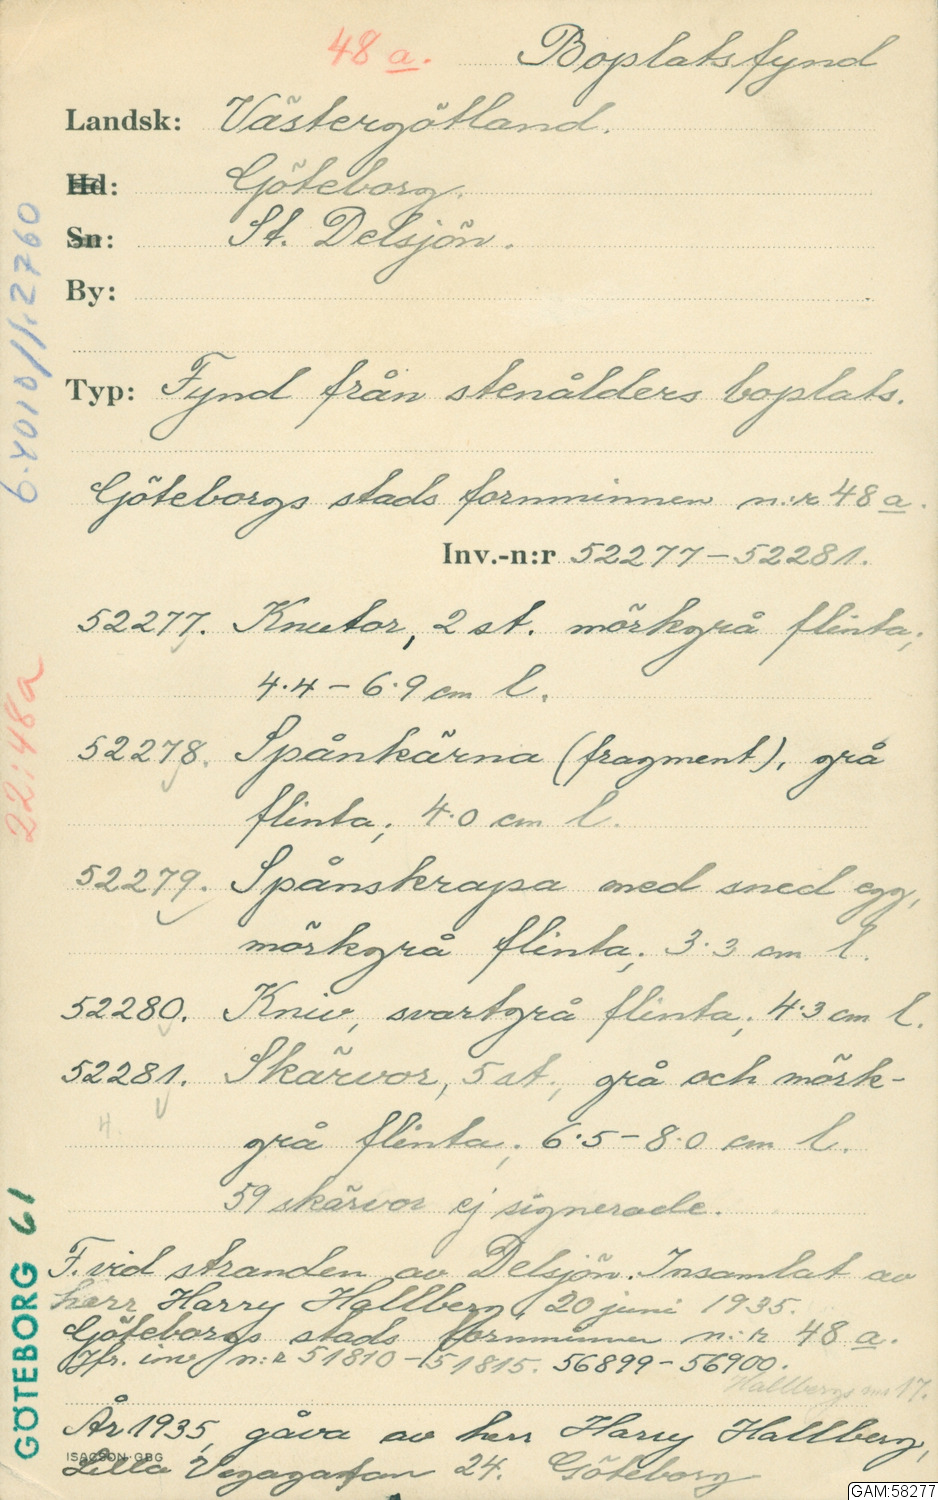 48 a. Boplatsfynd
Landsk: Västergötland.
Hd: Göteborg.
Sn: St. Delsjön.
By:
Typ: Fynd från stenålders boplats.
Göteborgs stads fornminnen n:r 48 a.
Inv.-n:r 52277-52281.
52277. Knutor, 2 st. mörkgrå flinta;
4.4 - 6.9 cm l.
52278. Spånkärna (fragment), grå
flinta; 4.0 cm l.
52279. Spånskrapa med sned egg,
mörkgrå flinta; 3.3 cm l.
52280. Kniv, svartgrå flinta; 4.3 cm l.
52281. Skärvor, 5 st., grå och mörk-
4.
grå flinta; 6.5 - 8.0 cm l.
59 skärvor ej signerade.
F. vid stranden av Delsjön. Insamlat av
herr Harry Hallberg, 20 juni 1935.
Göteborgs stads fornminnen n:r 48 a.
Jfr. inv n:r 51810-51815. 56899-56900.
Hallbergs nr 17.
År 1935, gåva av herr Harry Hallberg,
ISACSON-GBG
Lilla Vegagatan 24. Göteborg
6.4010//:2760
22:48a
GÖTEBORG 61
GAM:58277